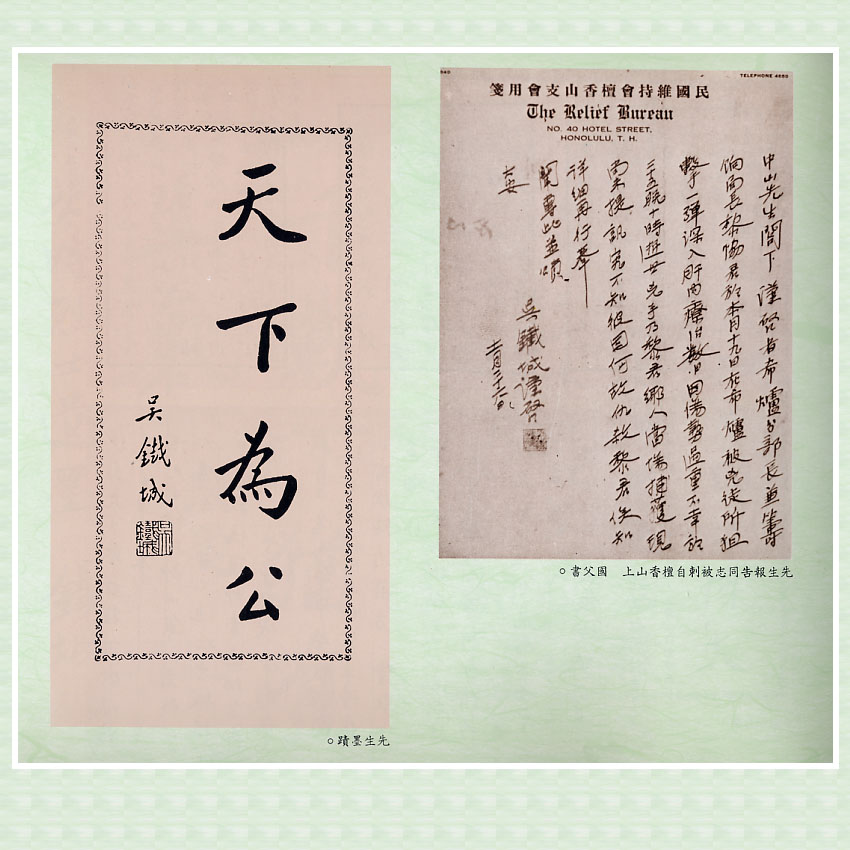 天下為公
吳鐵城
先生墨蹟。
民國維持會檀香山支會用箋
The Relief Bureau
NO. 40 HOTEL STREET.
HONOLULU, T. H.
中山先生閣下謹啓者希爐分部長兼籌
餉局長黎協君於本月十九日在希爐被兇徒所狙
擊一彈深入肝內療治數日因傷勢過重不幸於
二十五晚十時逝世兇手乃黎君鄉人當傷捕獲現
尚未提訊究不知彼因何故仇殺黎君俟知
詳細再行奉
聞專此並頌
大安
吳鐵城謹啓
月二十六日
TELEPHONE
先生報告同志被刺自檀香山上 國父書。